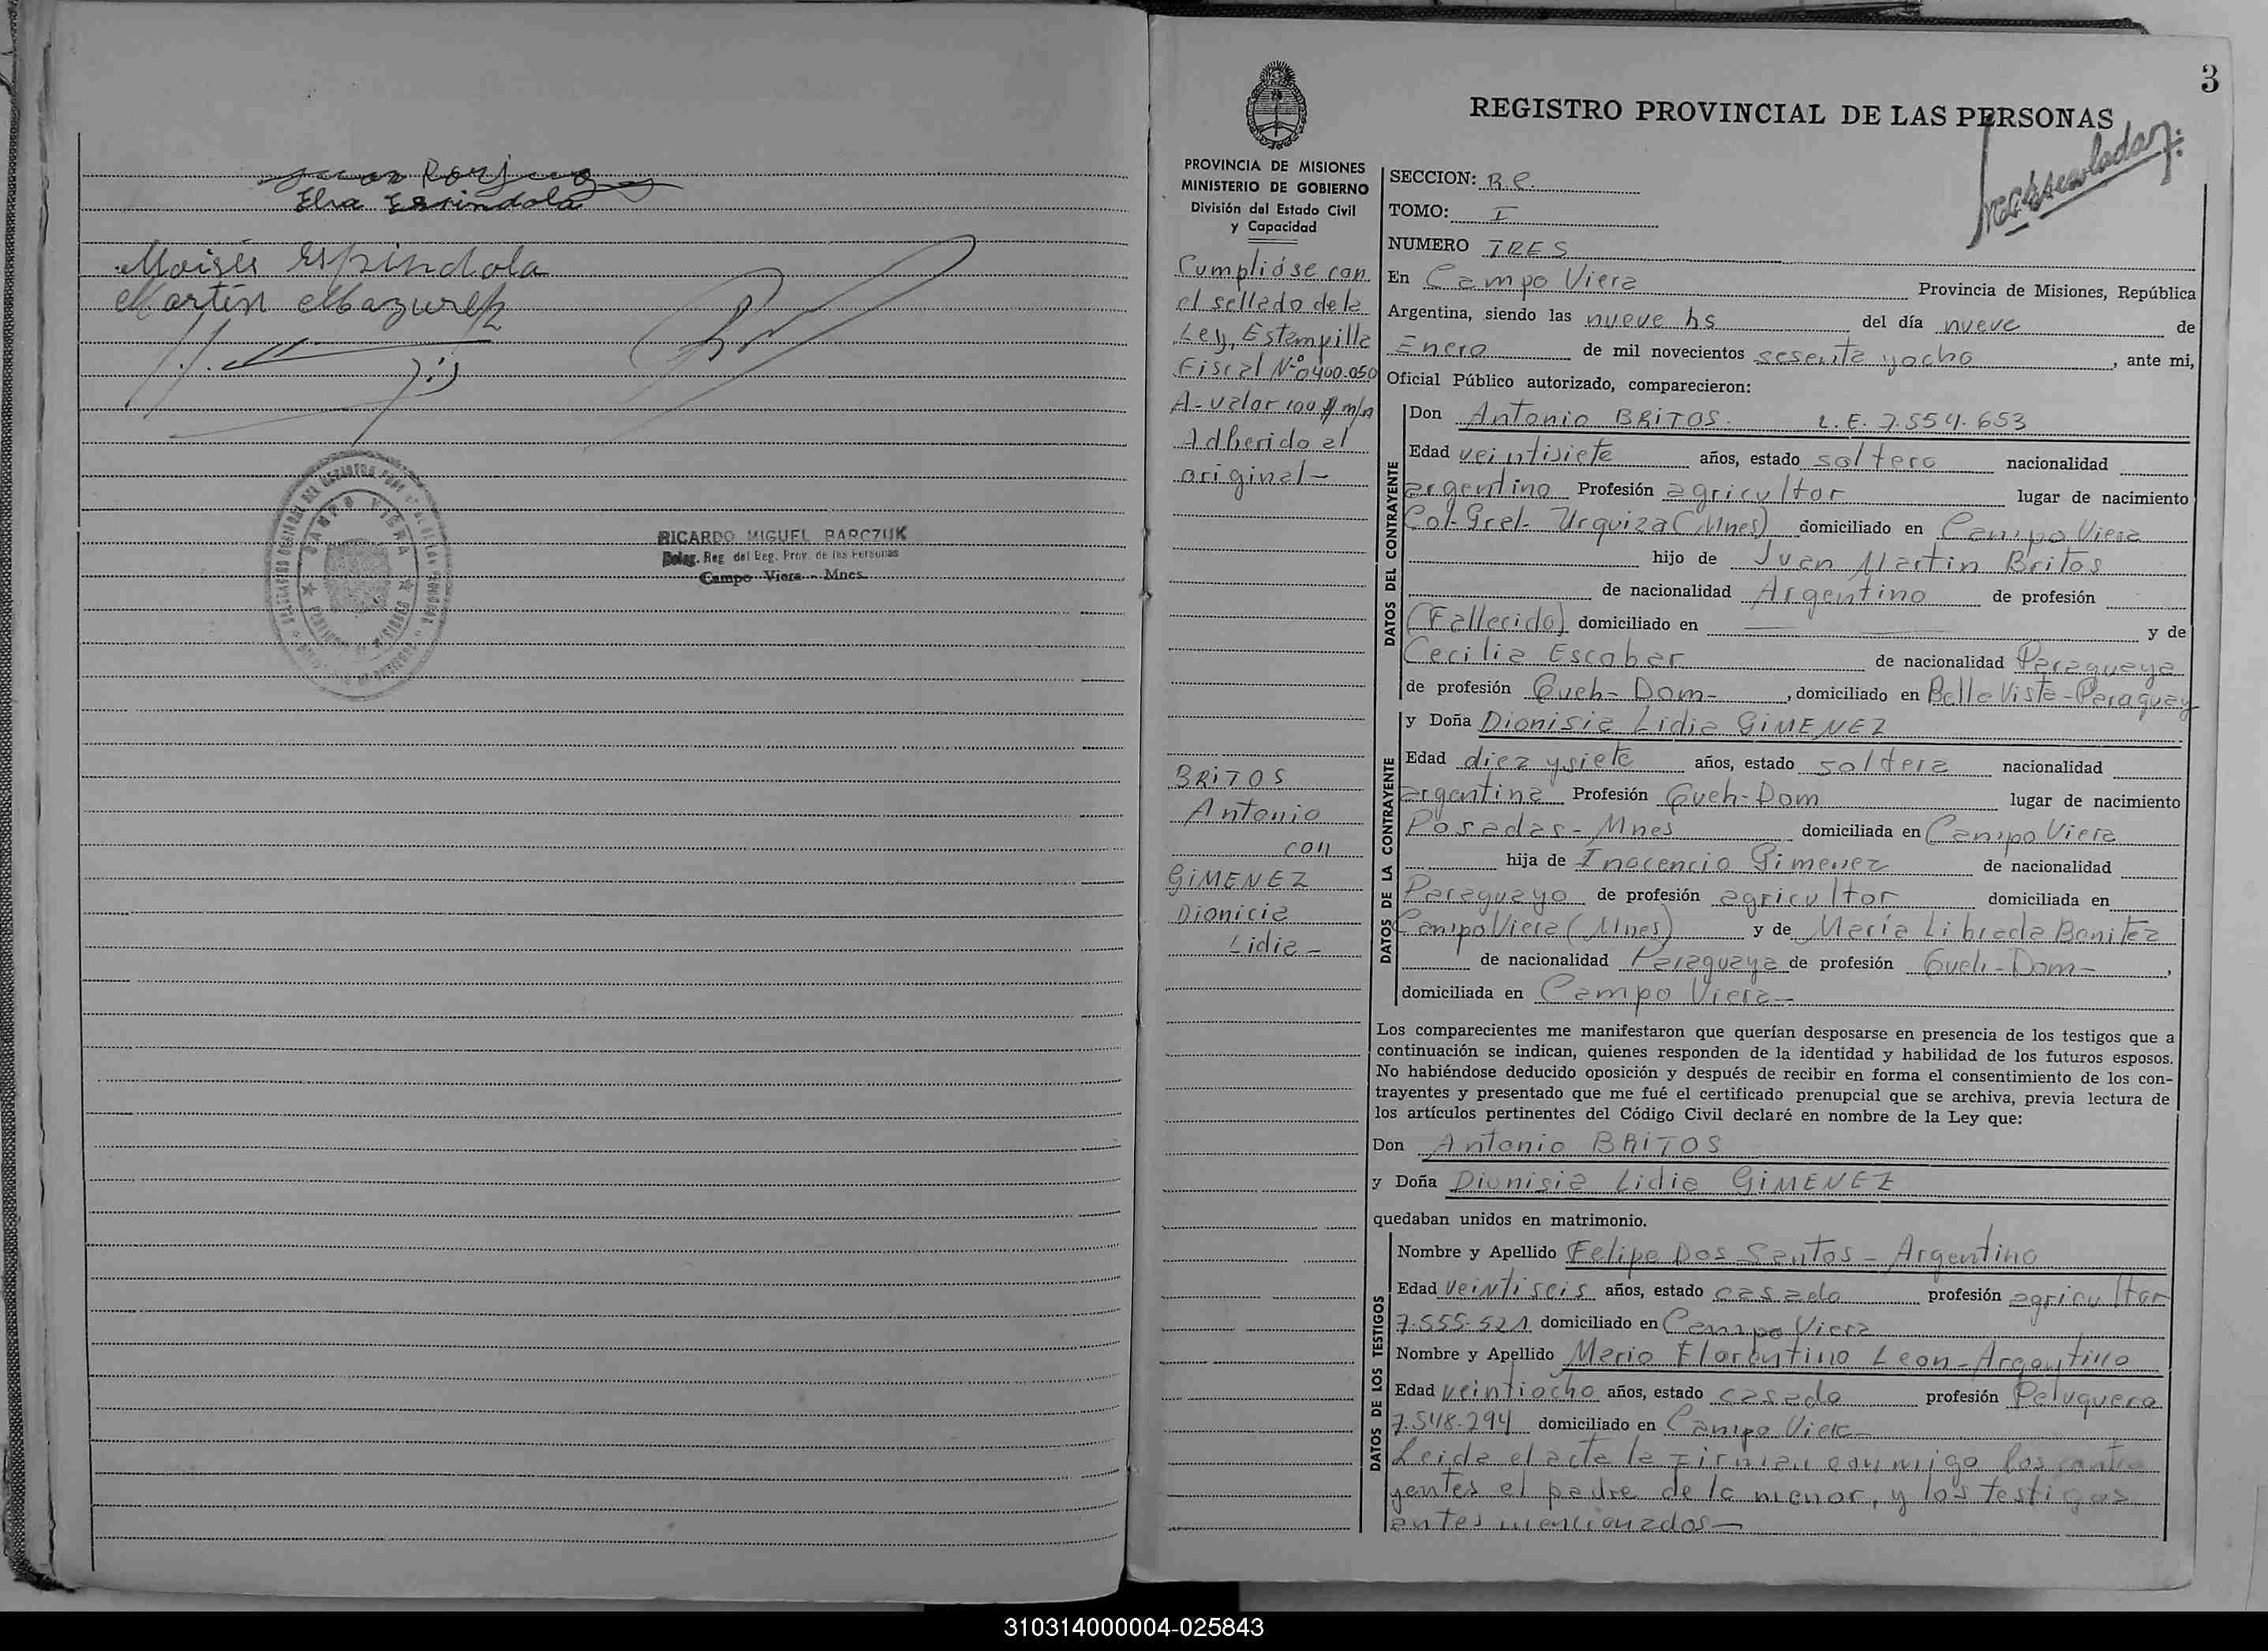 Elsa Espindola
Moisés Espindola
Martín Mazurek
CAMPO VIERA
RICARDO MIGUEL BARCZUK
Deleg. Reg. del Reg. Prov. de las Personas
Campo Viera - Mnes.
3
REGISTRO PROVINCIAL DE LAS PERSONAS
PROVINCIA DE MISIONES
MINISTERIO DE GOBIERNO
División del Estado Civil
y Capacidad
Cumplióse con
el sellado de la
Ley, Estampilla
Fiscal Nº 0400.050
A-valor 100 $ m/n
Adherido al
original-
BRITOS
Antonio
con
GIMENEZ
Dionicia
Lidia-
SECCION: B.C.
TOMO: I
NUMERO TRES
En Campo Viera Provincia de Misiones, República
Argentina, siendo las nueve hs del día nueve de
Enero de mil novecientos sesenta y ocho, ante mi,
Oficial Público autorizado, comparecieron:
DATOS DEL CONTRAYENTE
Don Antonio BRITOS. L.E. 7.554.653
Edad veintisiete años, estado soltero nacionalidad
argentino Profesión agricultor lugar de nacimiento
Col-Gral- Urquiza (Mnes) domiciliado en Campo Viera
hijo de Juan Martin Britos
de nacionalidad Argentino de profesión
(Fallecido) domiciliado en y de
Cecilia Escobar de nacionalidad Paraguaya
de profesión Queh-Dom-, domiciliado en Bella Vista-Paraguay
DATOS DE LA CONTRAYENTE
y Doña Dionisia Lidia GIMENEZ
Edad diez y siete años, estado soltera nacionalidad
argentina Profesión Queh-Dom lugar de nacimiento
Posadas-Mnes domiciliada en Campo Viera
hija de Inocencio Gimenez de nacionalidad
Paraguayo de profesión agricultor domiciliada en
Campo Viera (Mnes) y de María Librada Benitez
de nacionalidad Paraguaya de profesión Queh-Dom-,
domiciliada en Campo Viera-
Los comparecientes me manifestaron que querían desposarse en presencia de los testigos que a
continuación se indican, quienes responden de la identidad y habilidad de los futuros esposos.
No habiéndose deducido oposición y después de recibir en forma el consentimiento de los con-
trayentes y presentado que me fué el certificado prenupcial que se archiva, previa lectura de
los artículos pertinentes del Código Civil declaré en nombre de la Ley que:
Don Antonio BRITOS
y Doña Dionisia Lidia GIMENEZ
quedaban unidos en matrimonio.
DATOS DE LOS TESTIGOS
Nombre y Apellido Felipe Dos Santos - Argentino
Edad veintiseis años, estado casado profesión agricultor
7.555.521 domiciliado en Campo Viera
Nombre y Apellido Mario Florentino Leon - Argentino
Edad veintiocho años, estado casado profesión Peluquero
7.548.294 domiciliado en Campo Viera-
Leida el acta la Firman conmigo los contra
yentes el padre de la menor, y los testigos
antes mencionados-
310314000004-025843